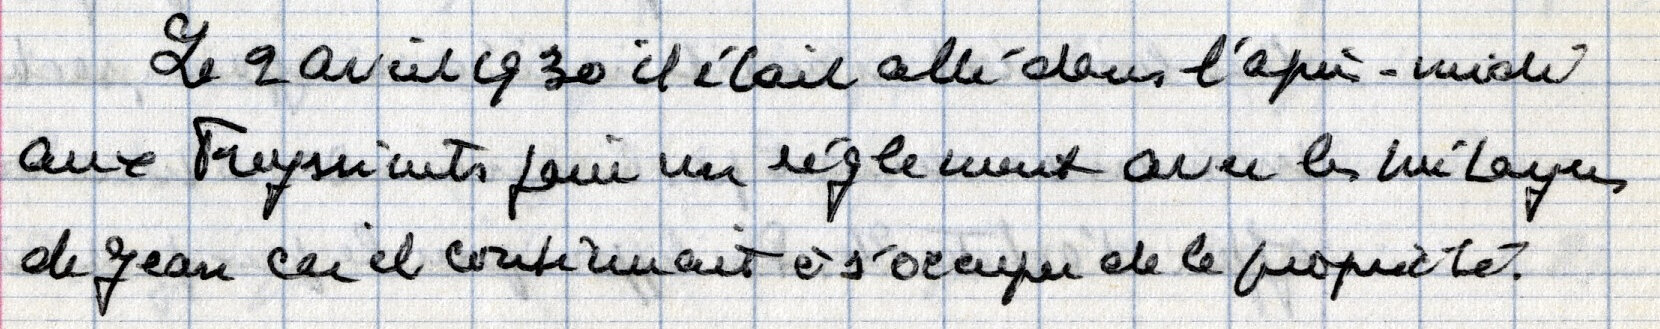 Le 2 avril 1930 il était allé dans l'après-midi
aux Freyssinets pour un règlement avec les métayers
de Jean car il continuait à s'occuper de la propriété.